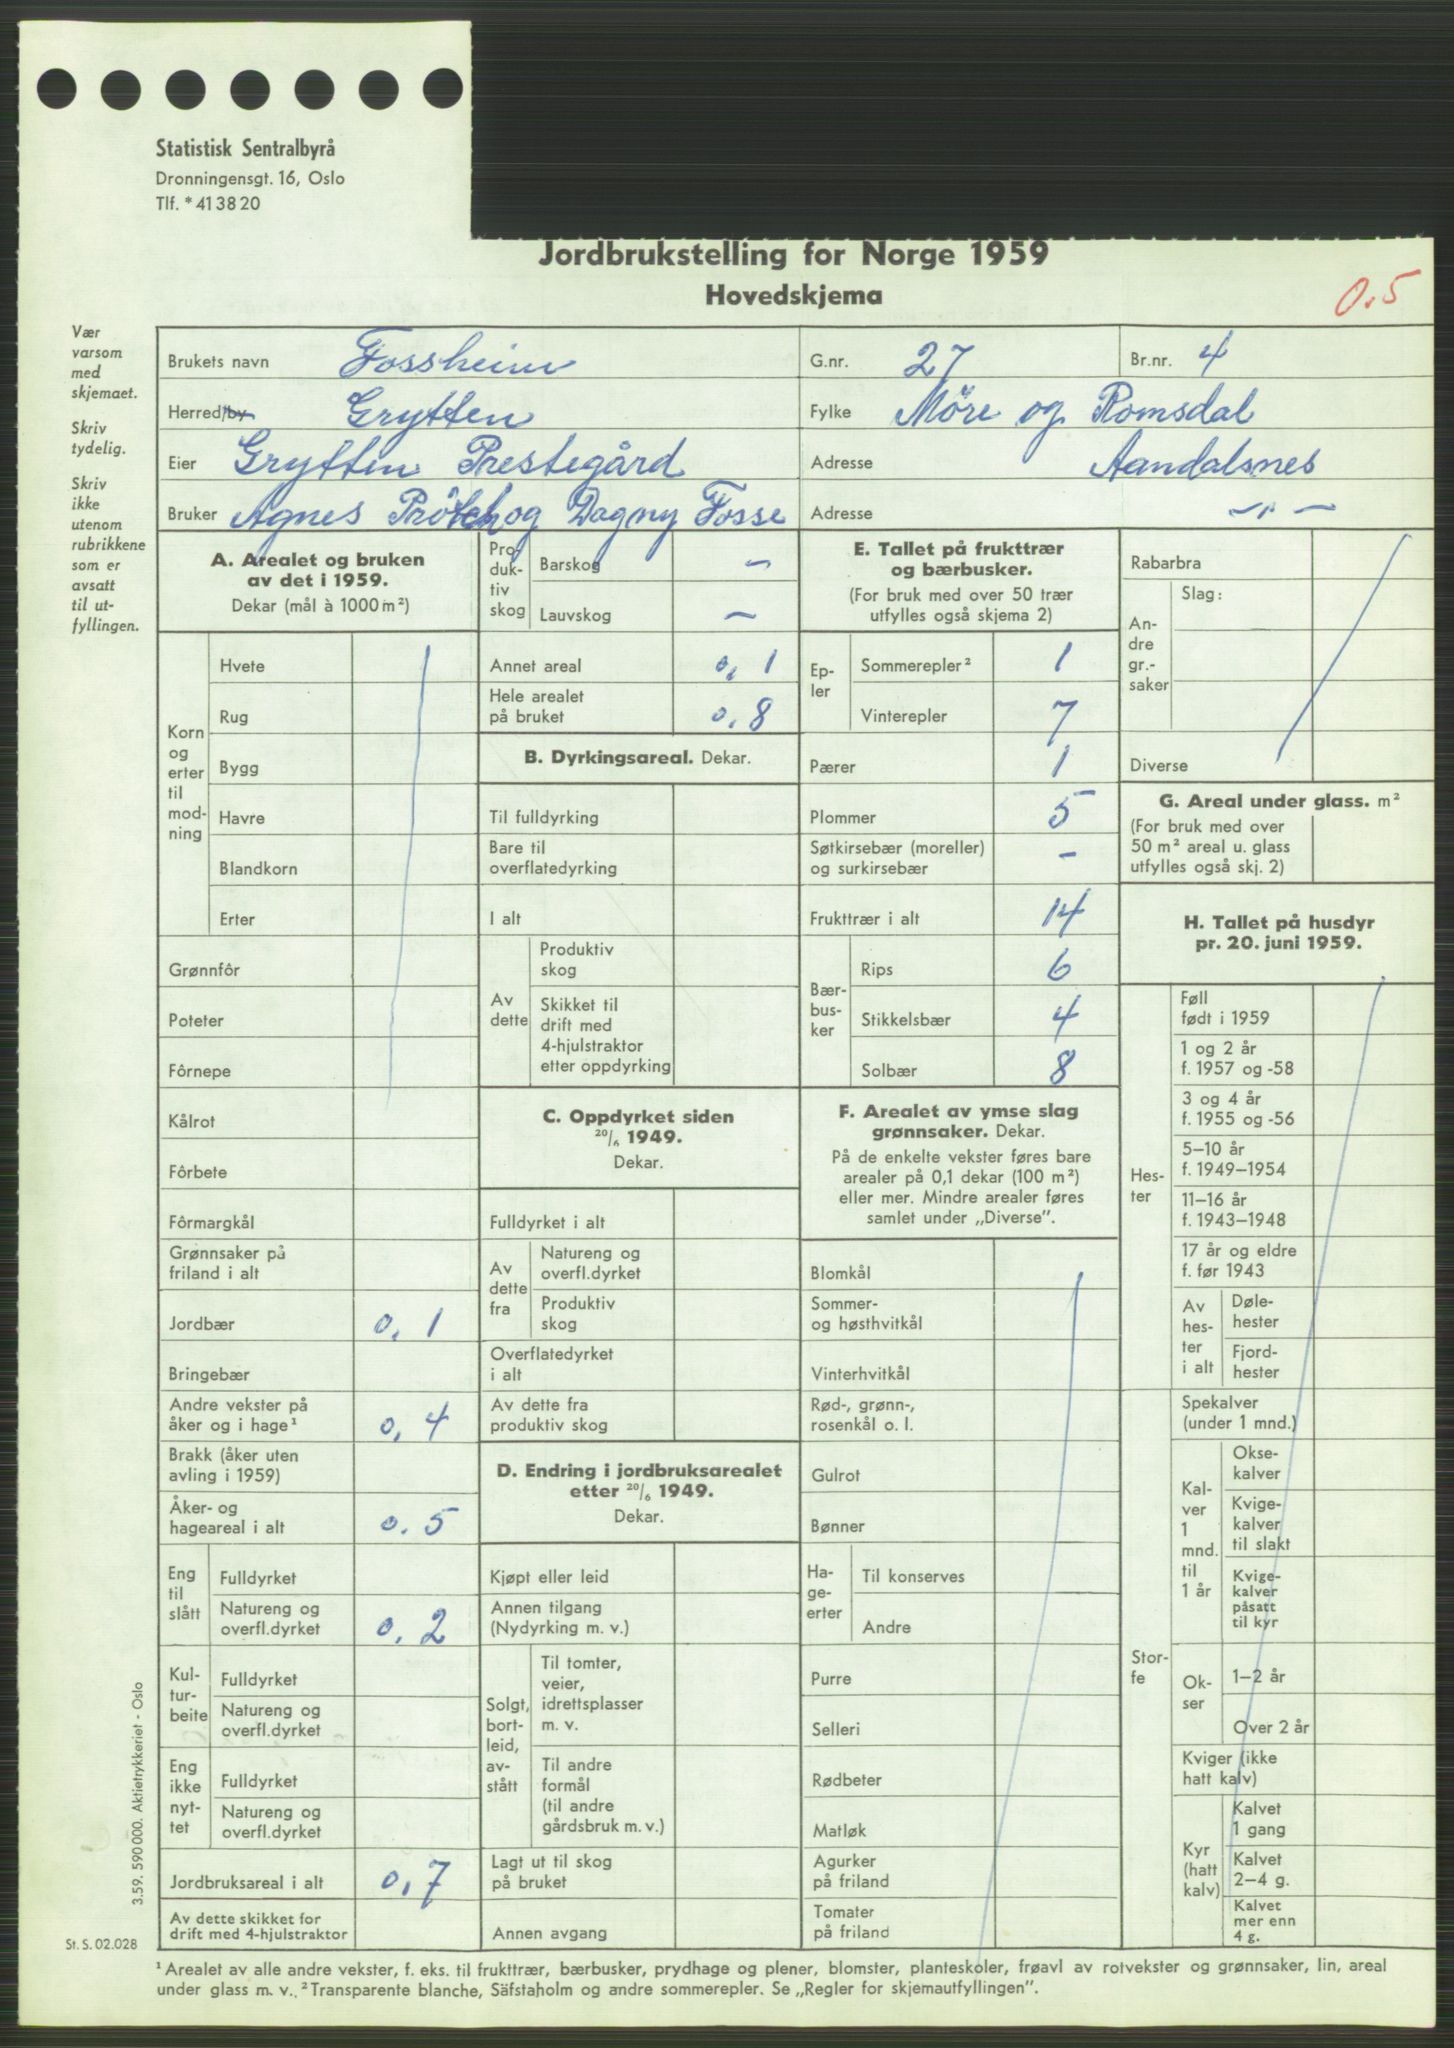 Statistisk Sentralbyrå
Dronningensgt. 16, Oslo
Tlf. * 41 38 20
Jordbrukstelling for Norge 1959
Hovedskjema
0.5
Vær
varsom
med
skjemaet.
Skriv
tydelig.
Skriv
ikke
utenom
rubrikkene
som er
avsatt
til ut-
fyllingen.
Brukets navn Fossheim G.nr. 27 Br.nr. 4
Herred/by Grytten Fylke Möre og Romsdal
Eier Grytten Prestegård Adresse Aandalsnes
Bruker Agnes og Dagny Fosse Adresse — " —
A. Arealet og bruken
av det i 1959.
Dekar (mål à 1000 m²)
Korn
og
erter
til
mod-
ning
Hvete
Rug
Bygg
Havre
Blandkorn
Erter
Grønnfôr
Poteter
Fôrnepe
Kålrot
Fôrbete
Fôrmargkål
Grønnsaker på
friland i alt
Jordbær 0,1
Bringebær
Andre vekster på
åker og i hage¹ 0,4
Brakk (åker uten
avling i 1959)
Åker- og
hageareal i alt 0.5
Eng
til
slått
Fulldyrket
Natureng og
overfl.dyrket 0.2
Kul-
tur-
beite
Fulldyrket
Natureng og
overfl.dyrket
Eng
ikke
nyt-
tet
Fulldyrket
Natureng og
overfl.dyrket
Jordbruksareal i alt 0,7
Av dette skikket for
drift med 4-hjulstraktor
Pro-
duk-
tiv
skog
Barskog —
Lauvskog —
Annet areal 0,1
Hele arealet
på bruket 0,8
B. Dyrkingsareal. Dekar.
Til fulldyrking
Bare til
overflatedyrking
I alt
Av
dette
Produktiv
skog
Skikket til
drift med
4-hjulstraktor
etter oppdyrking
C. Oppdyrket siden
20/6 1949.
Dekar.
Fulldyrket i alt
Av
dette
fra
Natureng og
overfl.dyrket
Produktiv
skog
Overflatedyrket
i alt
Av dette fra
produktiv skog
D. Endring i jordbruksarealet
etter 20/6 1949.
Dekar.
Kjøpt eller leid
Annen tilgang
(Nydyrking m. v.)
Solgt,
bort-
leid,
av-
stått
Til tomter,
veier,
idrettsplasser
m. v.
Til andre
formål
(til andre
gårdsbruk m. v.)
Lagt ut til skog
på bruket
Annen avgang
E. Tallet på frukttrær
og bærbusker.
(For bruk med over 50 trær
utfylles også skjema 2)
Ep-
ler
Sommerepler² 1
Vinterepler 7
Pærer 1
Plommer 5
Søtkirsebær (moreller)
og surkirsebær —
Frukttrær i alt 14
Bær-
bus-
ker
Rips 6
Stikkelsbær 4
Solbær 8
F. Arealet av ymse slag
grønnsaker. Dekar.
På de enkelte vekster føres bare
arealer på 0,1 dekar (100 m²)
eller mer. Mindre arealer føres
samlet under „Diverse”.
Blomkål
Sommer-
og høsthvitkål
Vinterhvitkål
Rød-, grønn-,
rosenkål o. l.
Gulrot
Bønner
Ha-
ge-
erter
Til konserves
Andre
Purre
Selleri
Rødbeter
Matløk
Agurker
på friland
Tomater
på friland
Rabarbra
An-
dre
gr.-
saker
Slag:
Diverse
G. Areal under glass. m²
(For bruk med over
50 m² areal u. glass
utfylles også skj. 2)
H. Tallet på husdyr
pr. 20. juni 1959.
Hes-
ter
Føll
født i 1959
1 og 2 år
f. 1957 og -58
3 og 4 år
f. 1955 og -56
5–10 år
f. 1949–1954
11–16 år
f. 1943–1948
17 år og eldre
f. før 1943
Av
hes-
ter
i alt
Døle-
hester
Fjord-
hester
Stor-
fe
Spekalver
(under 1 mnd.)
Kal-
ver
1
mnd.
til
1 år
Okse-
kalver
Kvige-
kalver
til slakt
Kvige-
kalver
påsatt
til kyr
Ok-
ser
1–2 år
Over 2 år
Kviger (ikke
hatt kalv)
Kyr
(hatt
kalv)
Kalvet
1 gang
Kalvet
2–4 g.
Kalvet
mer enn
4 g.
3.59. 590 000. Aktietrykkeriet - Oslo
St. S. 02.028
¹ Arealet av alle andre vekster, f. eks. til frukttrær, bærbusker, prydhage og plener, blomster, planteskoler, frøavl av rotvekster og grønnsaker, lin, areal
under glass m. v. ² Transparente blanche, Säfstaholm og andre sommerepler. Se „Regler for skjemautfyllingen”.